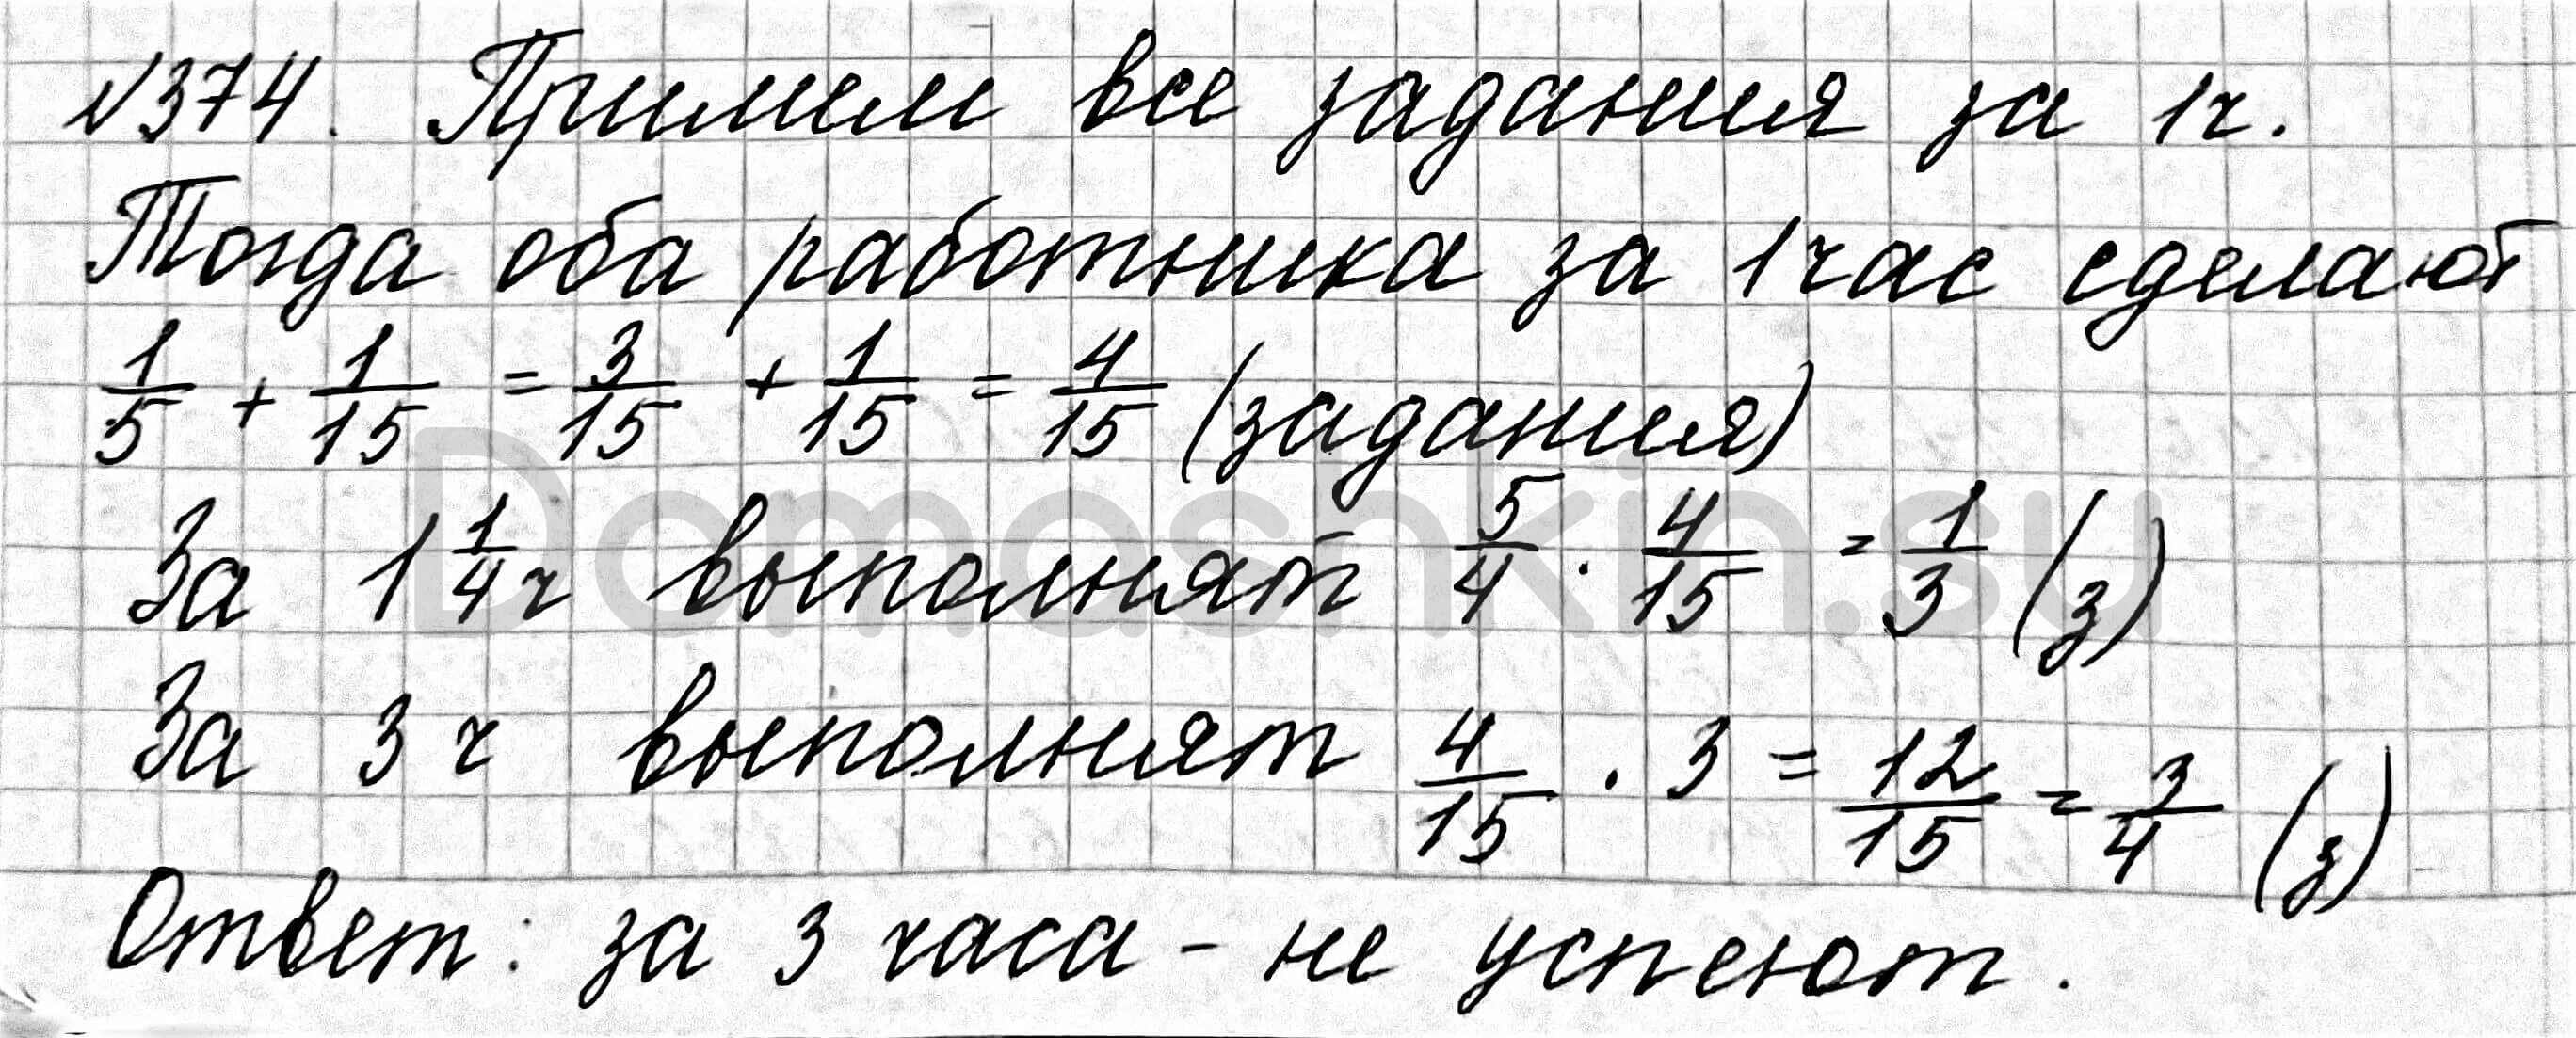 №374. Примем все задания за 1ч.
Тогда оба работника за 1 час сделают
1/5 + 1/15 = 3/15 + 1/15 = 4/15 (задания)
За 1 1/4 ч выполнят 5/4 · 4/15 = 1/3 (з)
За 3 ч выполнят 4/15 · 3 = 12/15 = 3/4 (з)
Ответ: за 3 часа - не успеют.
Domashkin.su